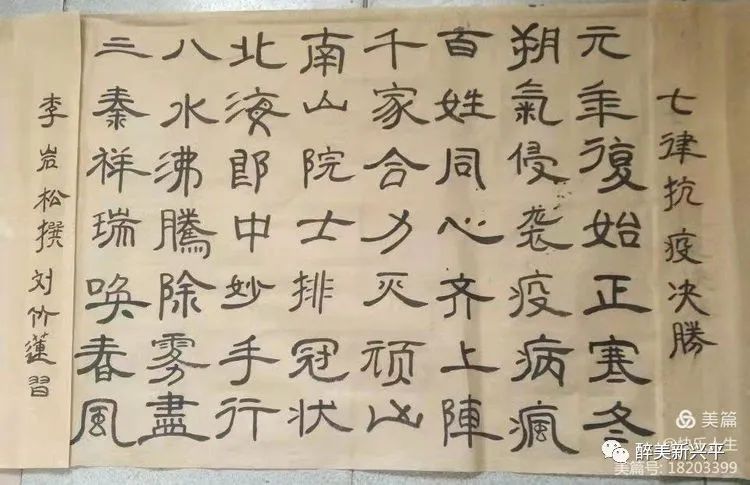 七律抗疫决勝
元年復始正寒冬
朔氣侵袭疫病瘋
百姓同心齐上陣
千家合力灭顽凶
南山院士排冠状
北海郎中妙手行
八水沸騰除雾盡
三秦祥瑞唤春風
李岩松撰刘竹蓮習
美篇
@快乐人生
醉美新兴平
美篇号: 18203399